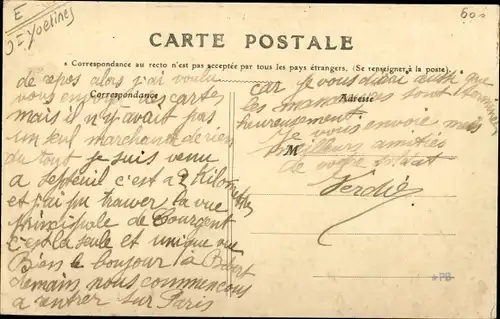 E
J = Yvelines
600
CARTE POSTALE
* Correspondance au recto n'est pas acceptée par tous les pays étrangers. (Se renseigner à la poste)
Correspondance
Adresse
M
de repos alors j'ai voulu
vous envoyer des cartes
mais il n'y avait pas
un seul marchand de rien
du tout je suis venu
a Septeuil c'est a 2 kilomètres
et j'ai pu trouver la vue
principale de Courgent
c'est la seule et unique vue
Bien le bonjour à Bébert
demain nous commencons
a rentrer sur Paris
car je vous dirai aussi que
les manœuvres sont terminées
heureusement.
Je vous envoie mes
meilleurs amitiés
de votre soldat
Verdié
PB